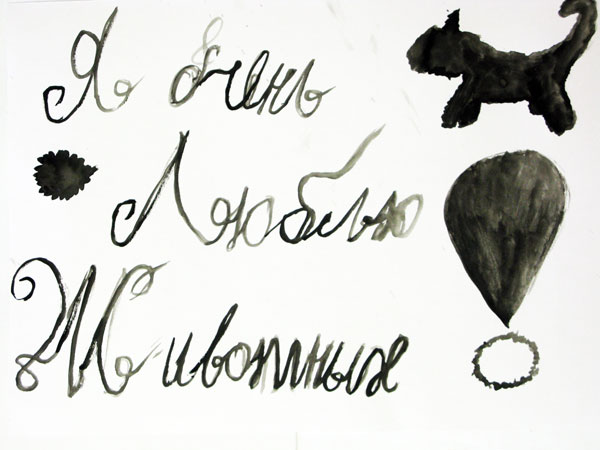 Я очень
Люблю
Животных